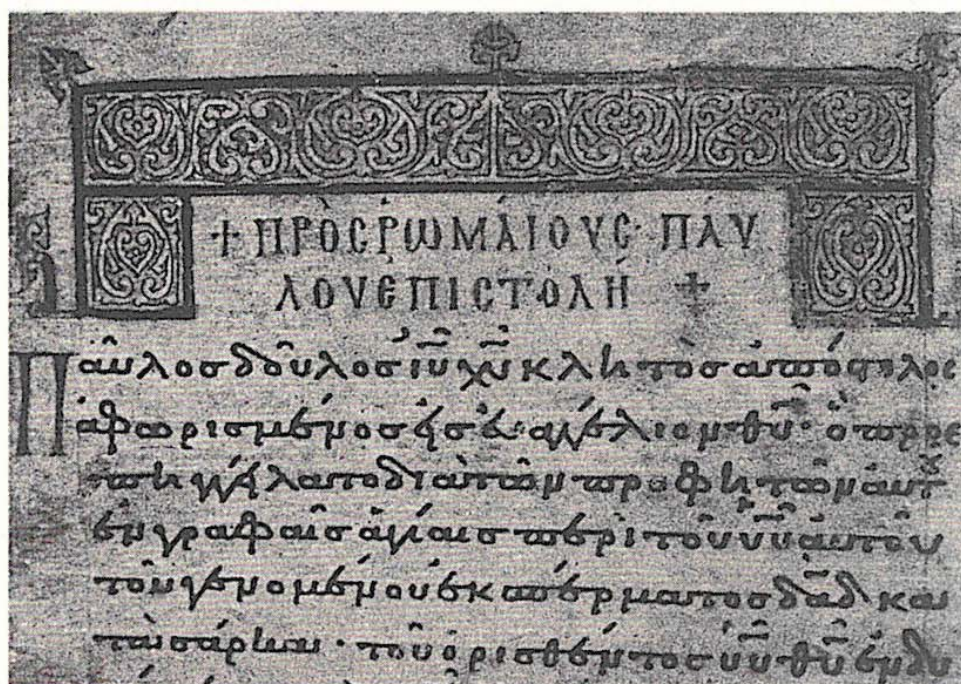 + ΠΡὸC ῬΩΜΑΊΟΥC· ΠΑΥ
ΛΟΥ ἘΠΙCΤΟΛΉ +
Παῦλος δοῦλος ἰῦ χῦ κλητὸς ἀπόστολος
ἀφωρισμένος εἰς εὐαγγέλιον θῦ· ὃ προε
πηγγείλατο διὰ τῶν προφητῶν αὐτοῦ
ἐν γραφαῖς ἁγίαις περὶ τοῦ υῦ αὐτοῦ
τοῦ γενομένου ἐκ σπέρματος δᾱδ κα
τὰ σάρκα· τοῦ ὁρισθέντος υῦ θῦ ἐν δυ